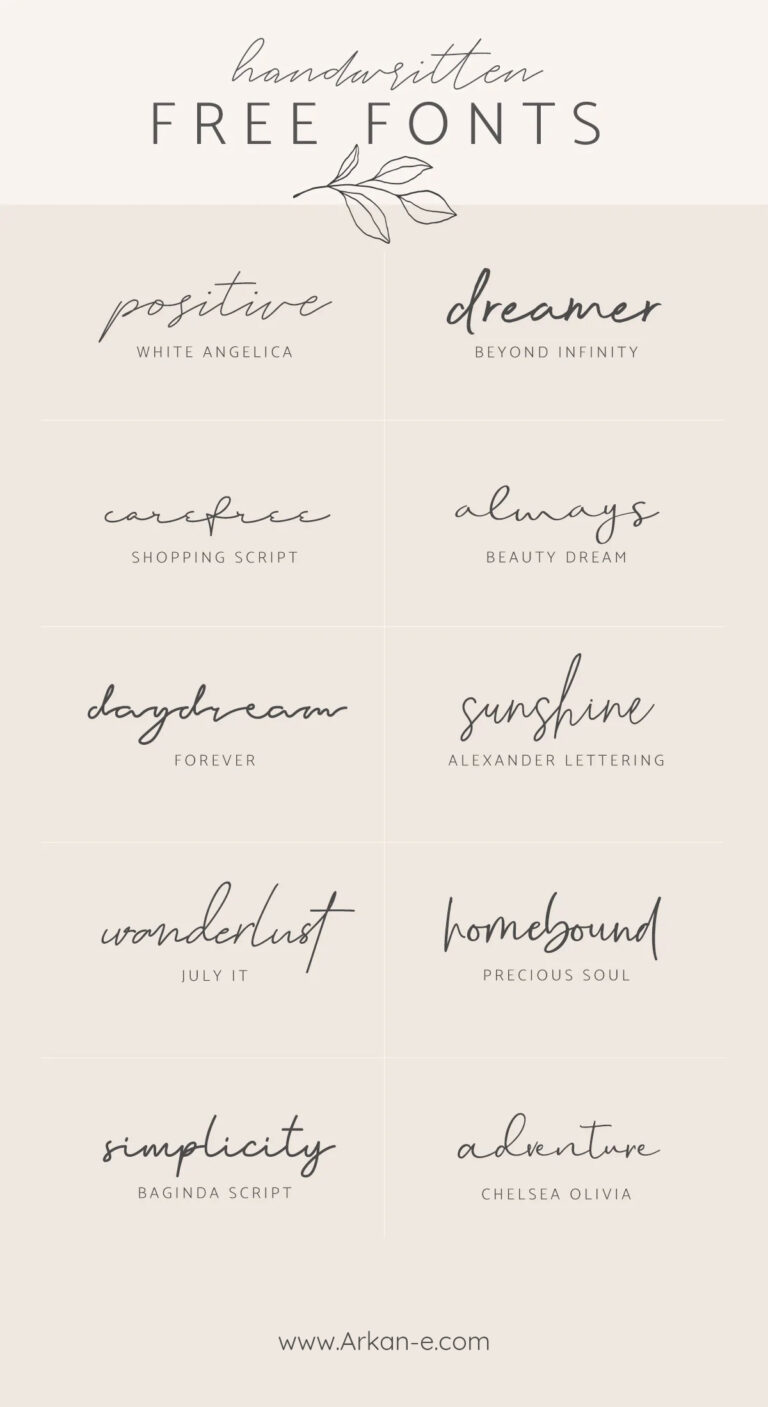 handwritten
FREE FONTS
positive
WHITE ANGELICA
dreamer
BEYOND INFINITY
carefree
SHOPPING SCRIPT
always
BEAUTY DREAM
daydream
FOREVER
sunshine
ALEXANDER LETTERING
wanderlust
JULY IT
homebound
PRECIOUS SOUL
simplicity
BAGINDA SCRIPT
adventure
CHELSEA OLIVIA
www.Arkan-e.com